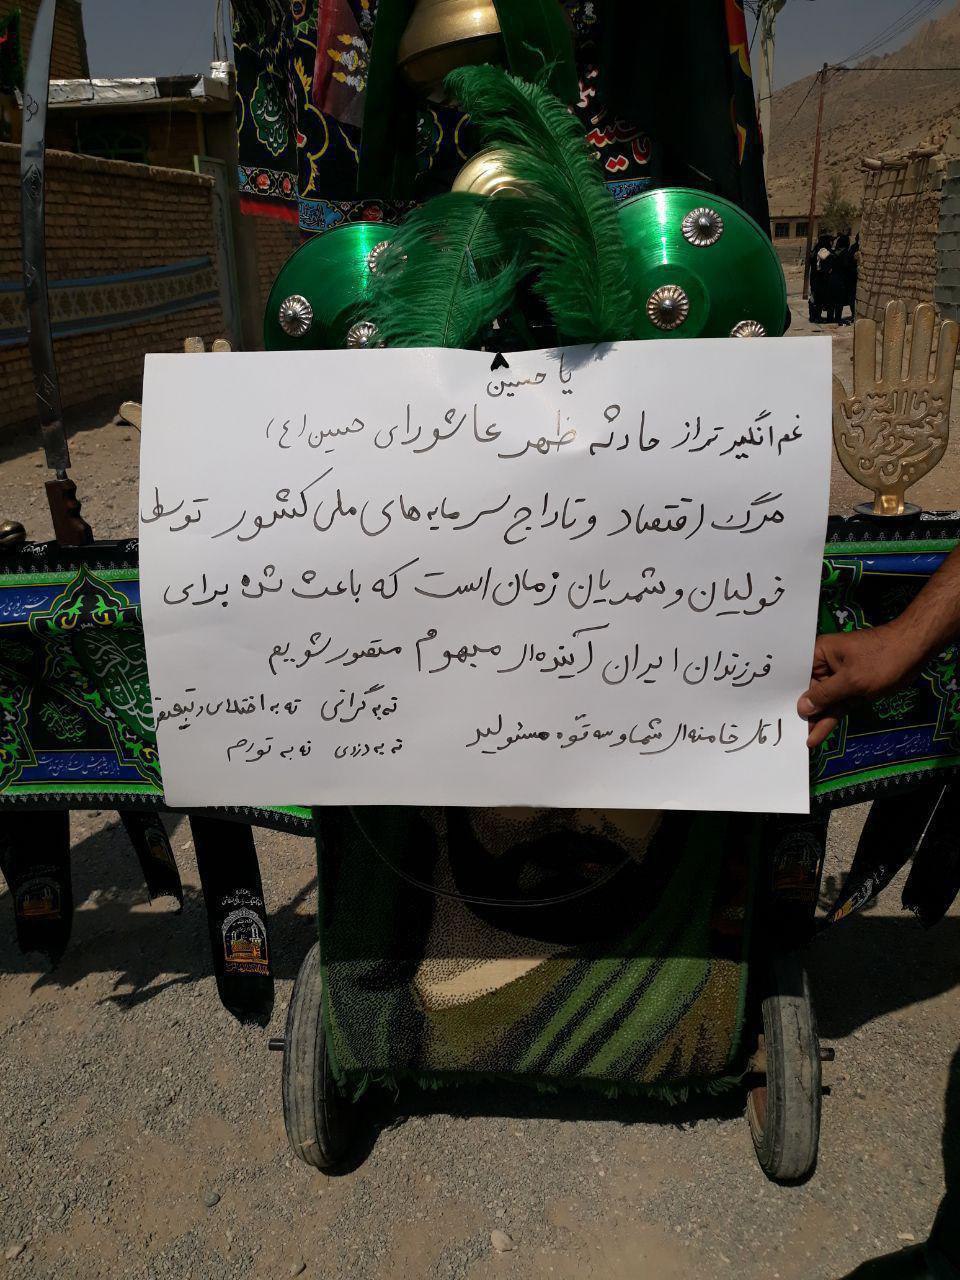 یا حسین
غم انگیز تر از حادثه ظهر عاشورای حسین (ع)
مرگ اقتصاد و تاراج سرمایه های ملی کشور توسط
خولیان و شمریان زمان است که باعث شده برای
فرزندان ایران آینده ای مبهوم متصور شویم
اقای خامنه ای شما و سه قوّه مسئولید
نه به گرانی نه به اختلاس و تبعیض
نه به دزدی نه به تورم